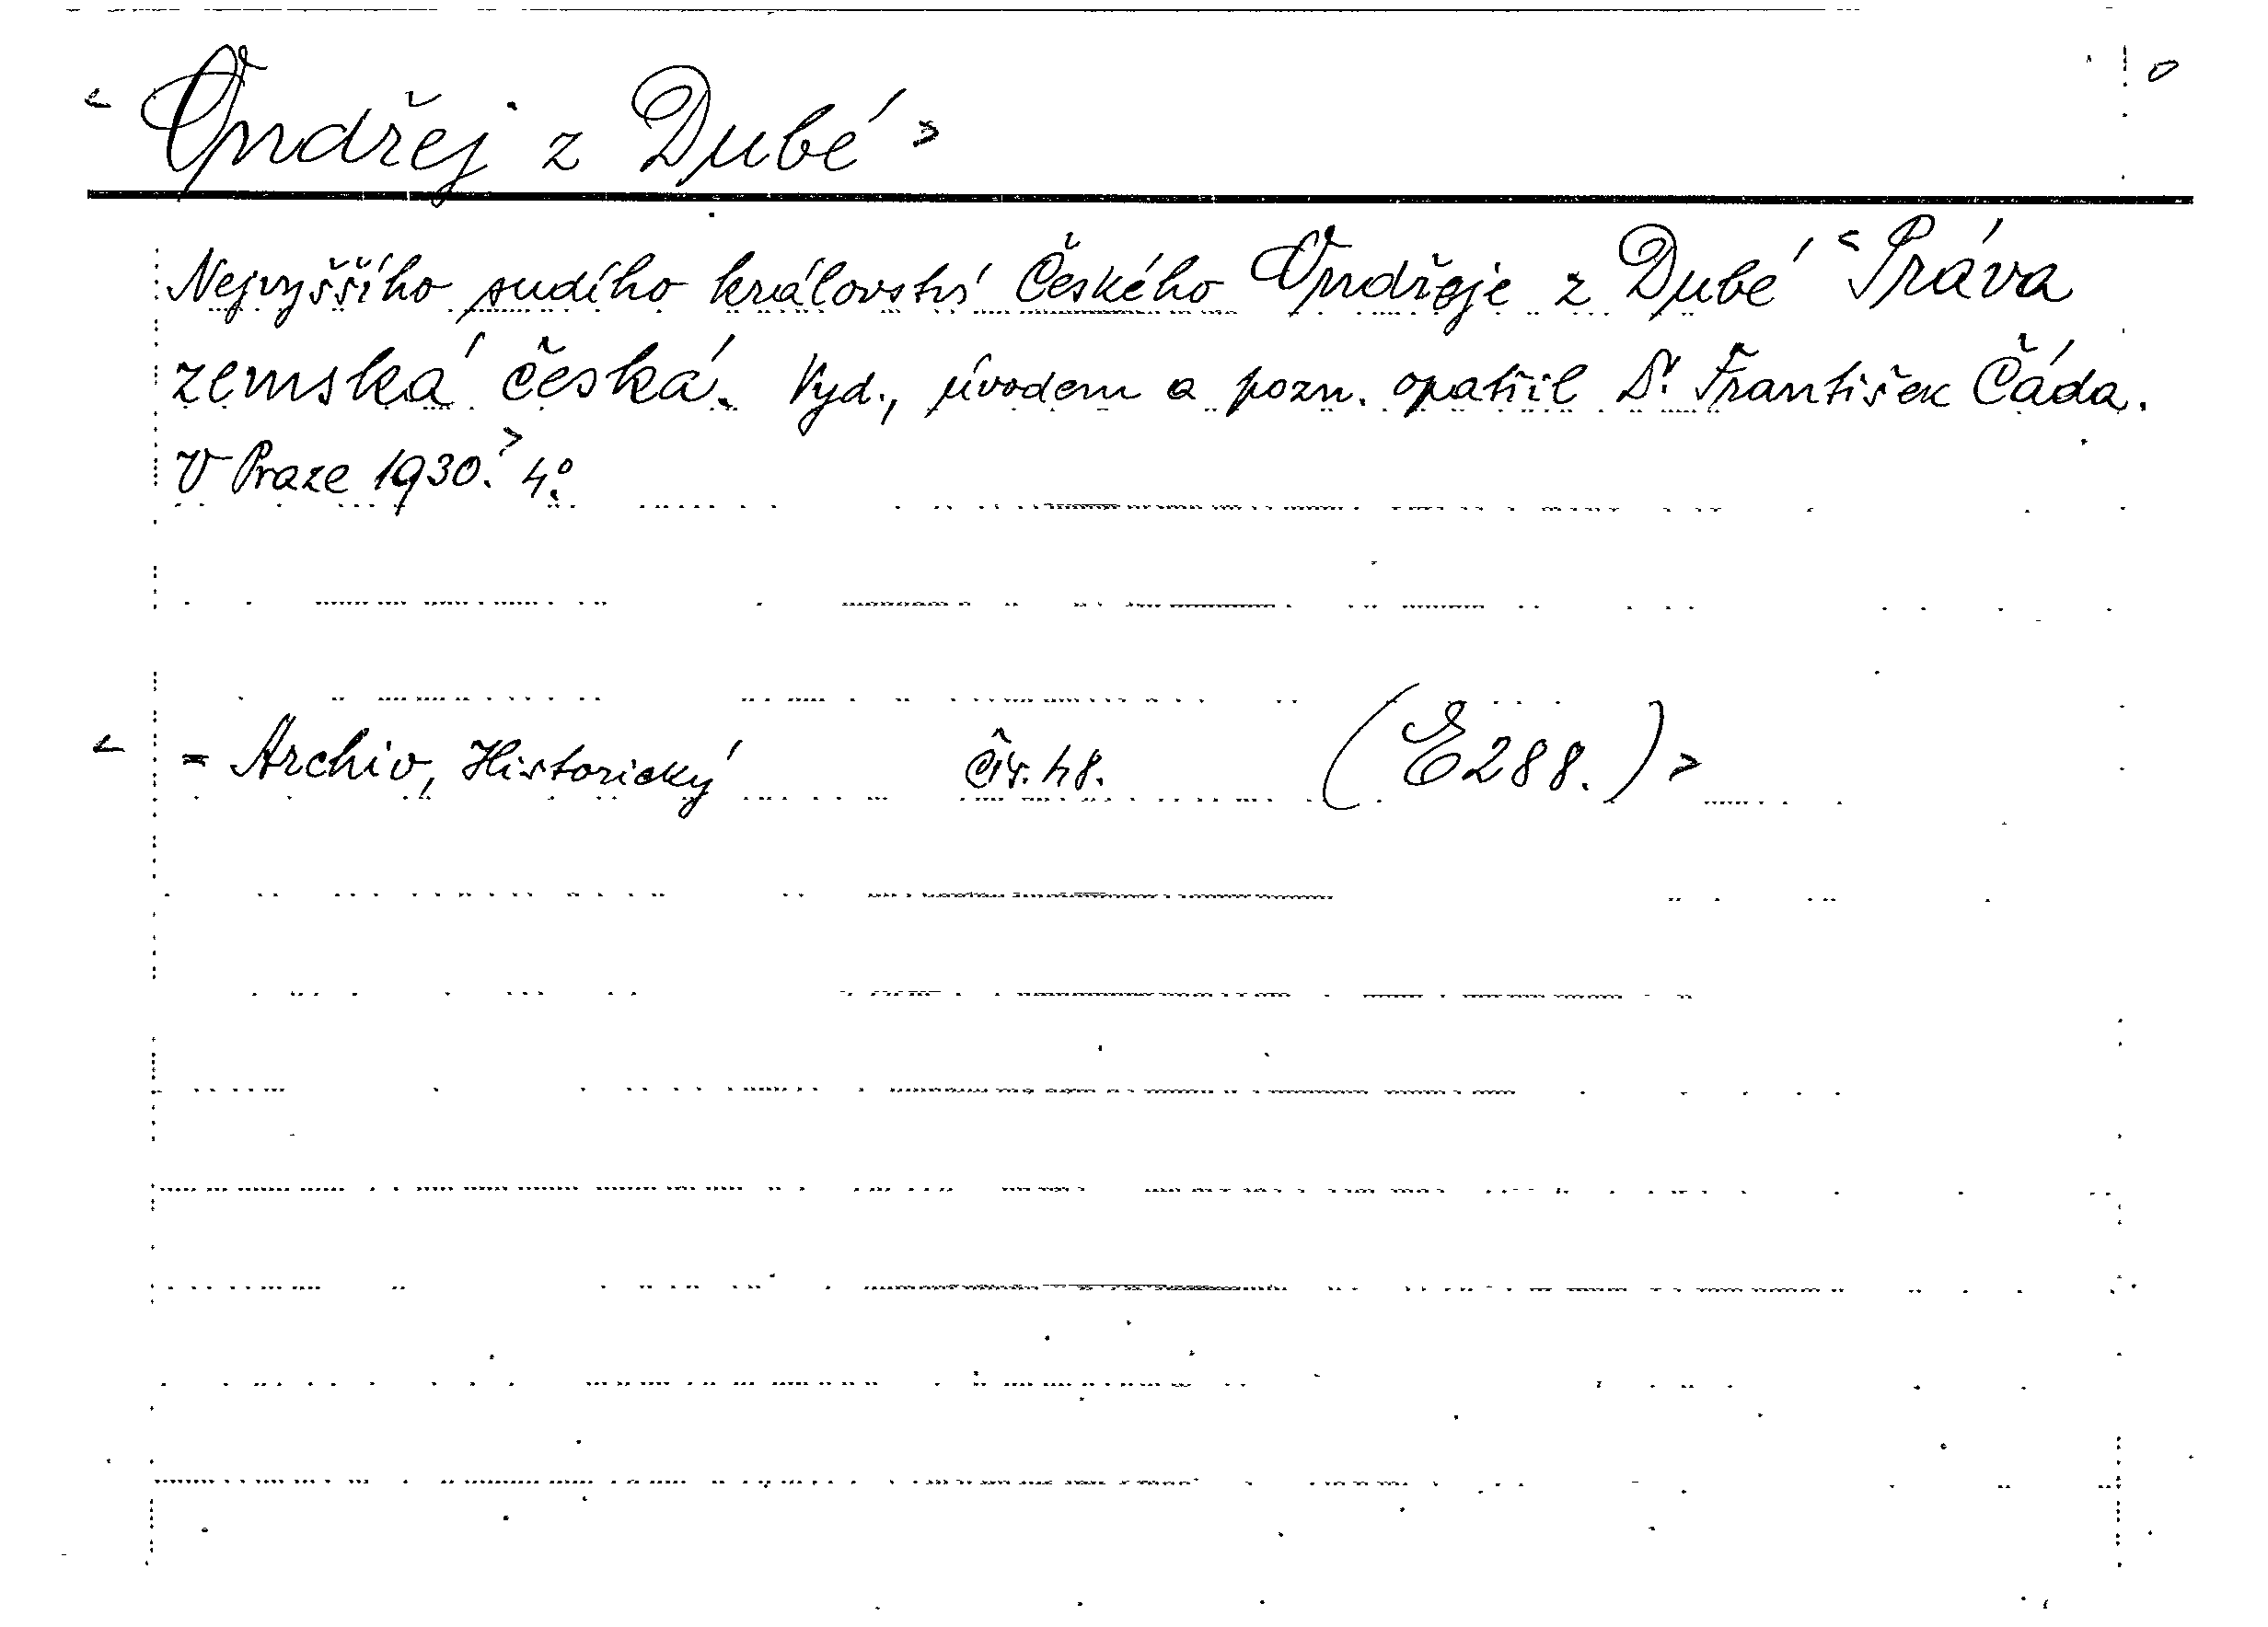 < Ondřej z Dubé >
Nejvyššího sudího království Českého Ondřeje z Dubé < Práva
zemská česká. Vyd., úvodem a pozn. opatřil Dr. František Čáda.
V Praze 1930. > 4°.
< = Archiv, Historický Čís. 48. (E 288.) >